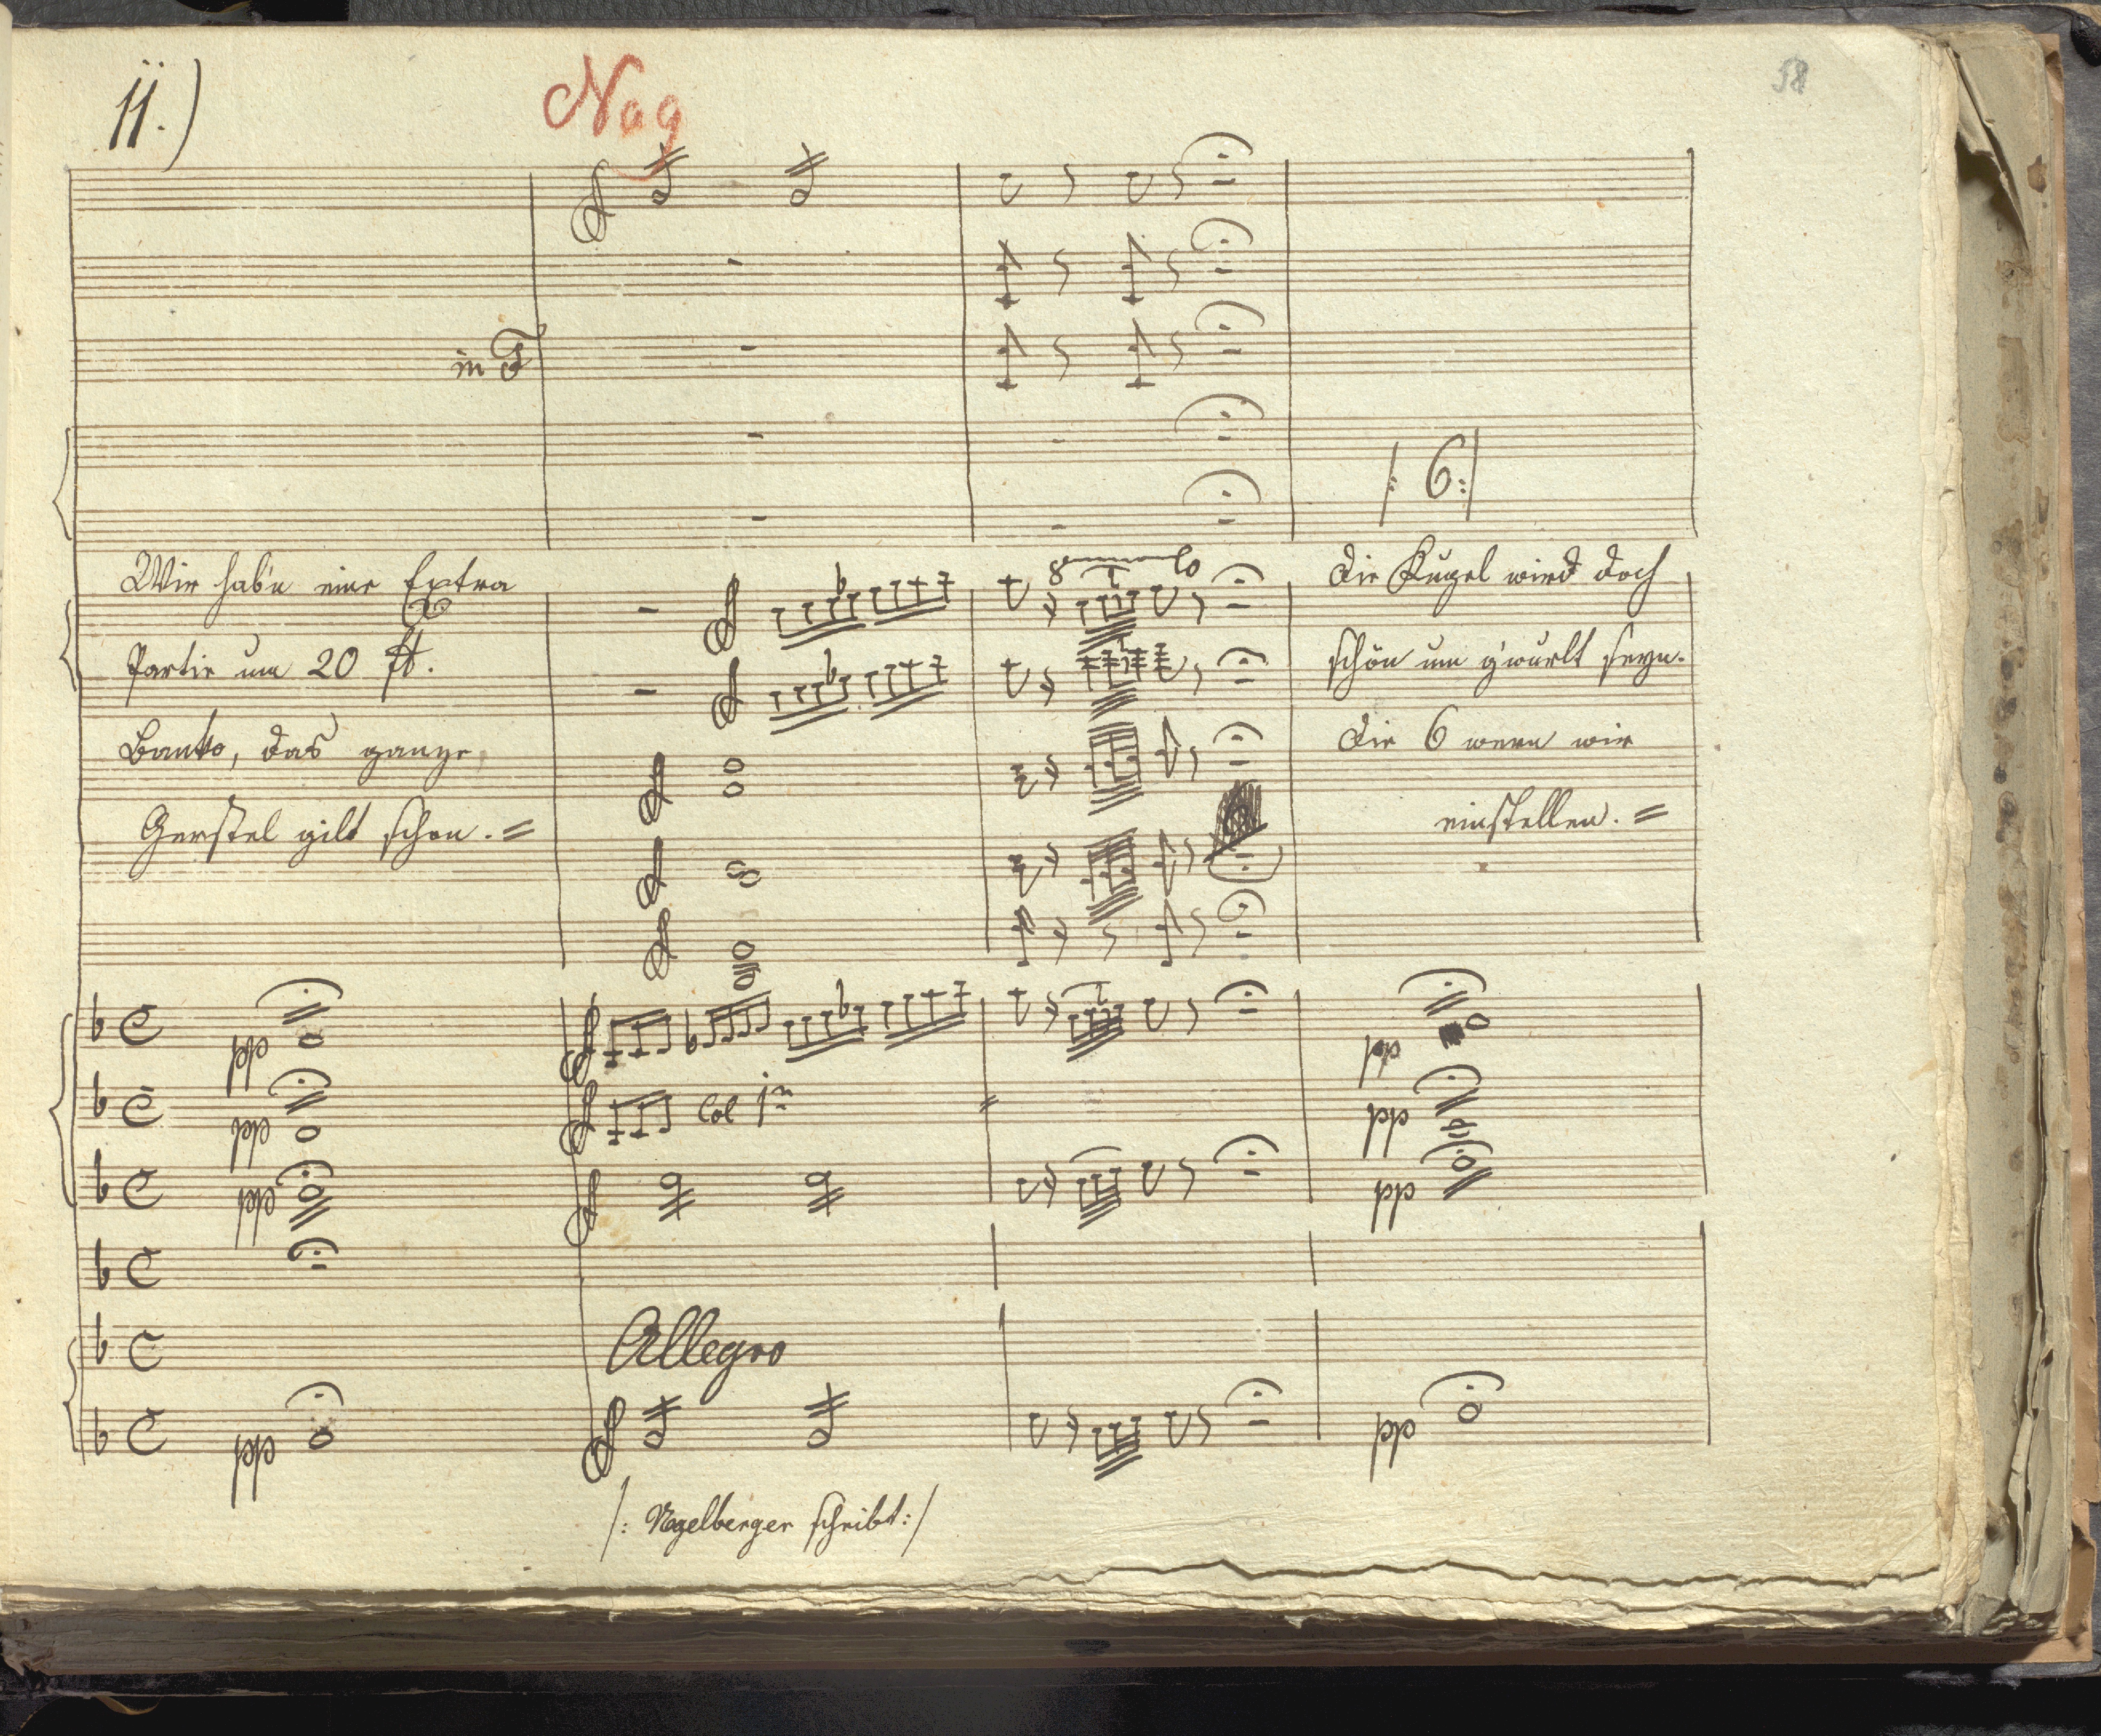 11.)
Nag
58
in F
|: 6 :|
Wir hab'n eine Extra
Partie um 20 ft.
Banko, das ganze
Gerstel gilt schon. =
8 lo
Die Kugel wird doch
schön um g'wurlt seyn.
Die 6 wern wir
einstellen. =
pp
pp
pp
Col 1mo
pp
pp
pp
Allegro
pp
pp
|: Nagelberger schribt :|